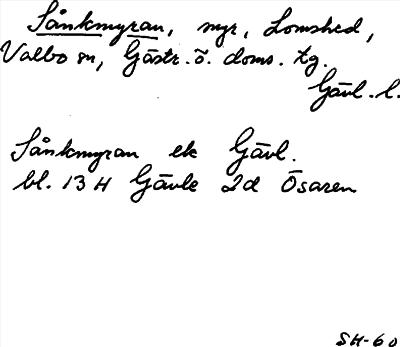 Sånkmyran, myr, Lomshed,
Valbo sn, Gästr. ö. doms. tg.
Gävl. l.
Sånkmyran ek Gävl.
bl. 13 H Gävle 2d Ösaren
SH-60